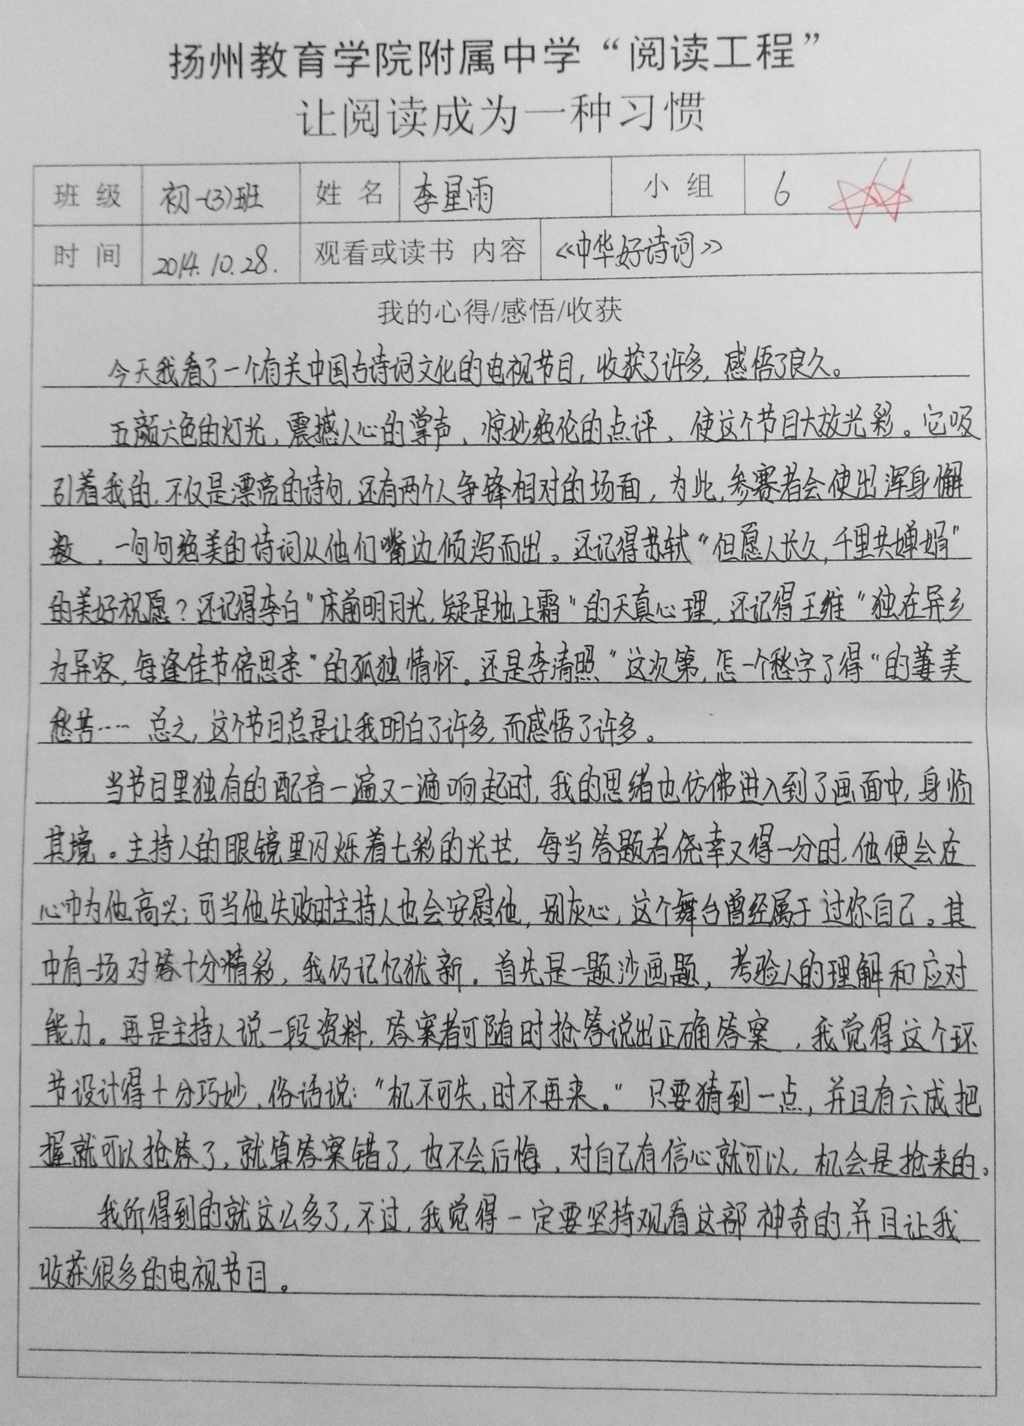 扬州教育学院附属中学“阅读工程”
让阅读成为一种习惯
班 级 初一(3)班 姓 名 李星雨 小 组 6
时 间 2014.10.28. 观看或读书 内容 《中华好诗词》
我的心得/感悟/收获
今天我看了一个有关中国古诗词文化的电视节目，收获了许多，感悟了良久。
五颜六色的灯光、震撼人心的掌声、惊妙绝伦的点评、使这个节目大放光彩。它吸
引着我的，不仅是漂亮的诗句，还有两个人争锋相对的场面，为此，参赛者会使出浑身懈
数，一句句绝美的诗词从他们嘴边倾泻而出。还记得苏轼“但愿人长久，千里共婵娟”
的美好祝愿？还记得李白“床前明月光，疑是地上霜”的天真心理，还记得王维“独在异乡
为异客，每逢佳节倍思亲”的孤独情怀。还是李清照“这次第，怎一个愁字了得”的萋美
愁苦…… 总之，这个节目总是让我明白了许多，而感悟了许多。
当节目里独有的配音一遍又一遍响起时，我的思绪也仿佛进入到了画面中，身临
其境。主持人的眼镜里闪烁着七彩的光芒，每当答题者侥幸又得一分时，他便会在
心中为他高兴；可当他失败时主持人也会安慰他，别灰心，这个舞台曾经属于过你自己。其
中有一场对答十分精彩，我仍记忆犹新。首先是一题沙画题，考验人的理解和应对
能力。再是主持人说一段资料，答案者可随时抢答说出正确答案，我觉得这个环
节设计得十分巧妙、俗话说：“机不可失，时不再来。”只要猜到一点，并且有六成把
握就可以抢答了，就算答案错了，也不会后悔，对自己有信心就可以，机会是抢来的。
我所得到的就这么多了，不过，我觉得一定要坚持观看这部神奇的，并且让我
收获很多的电视节目。